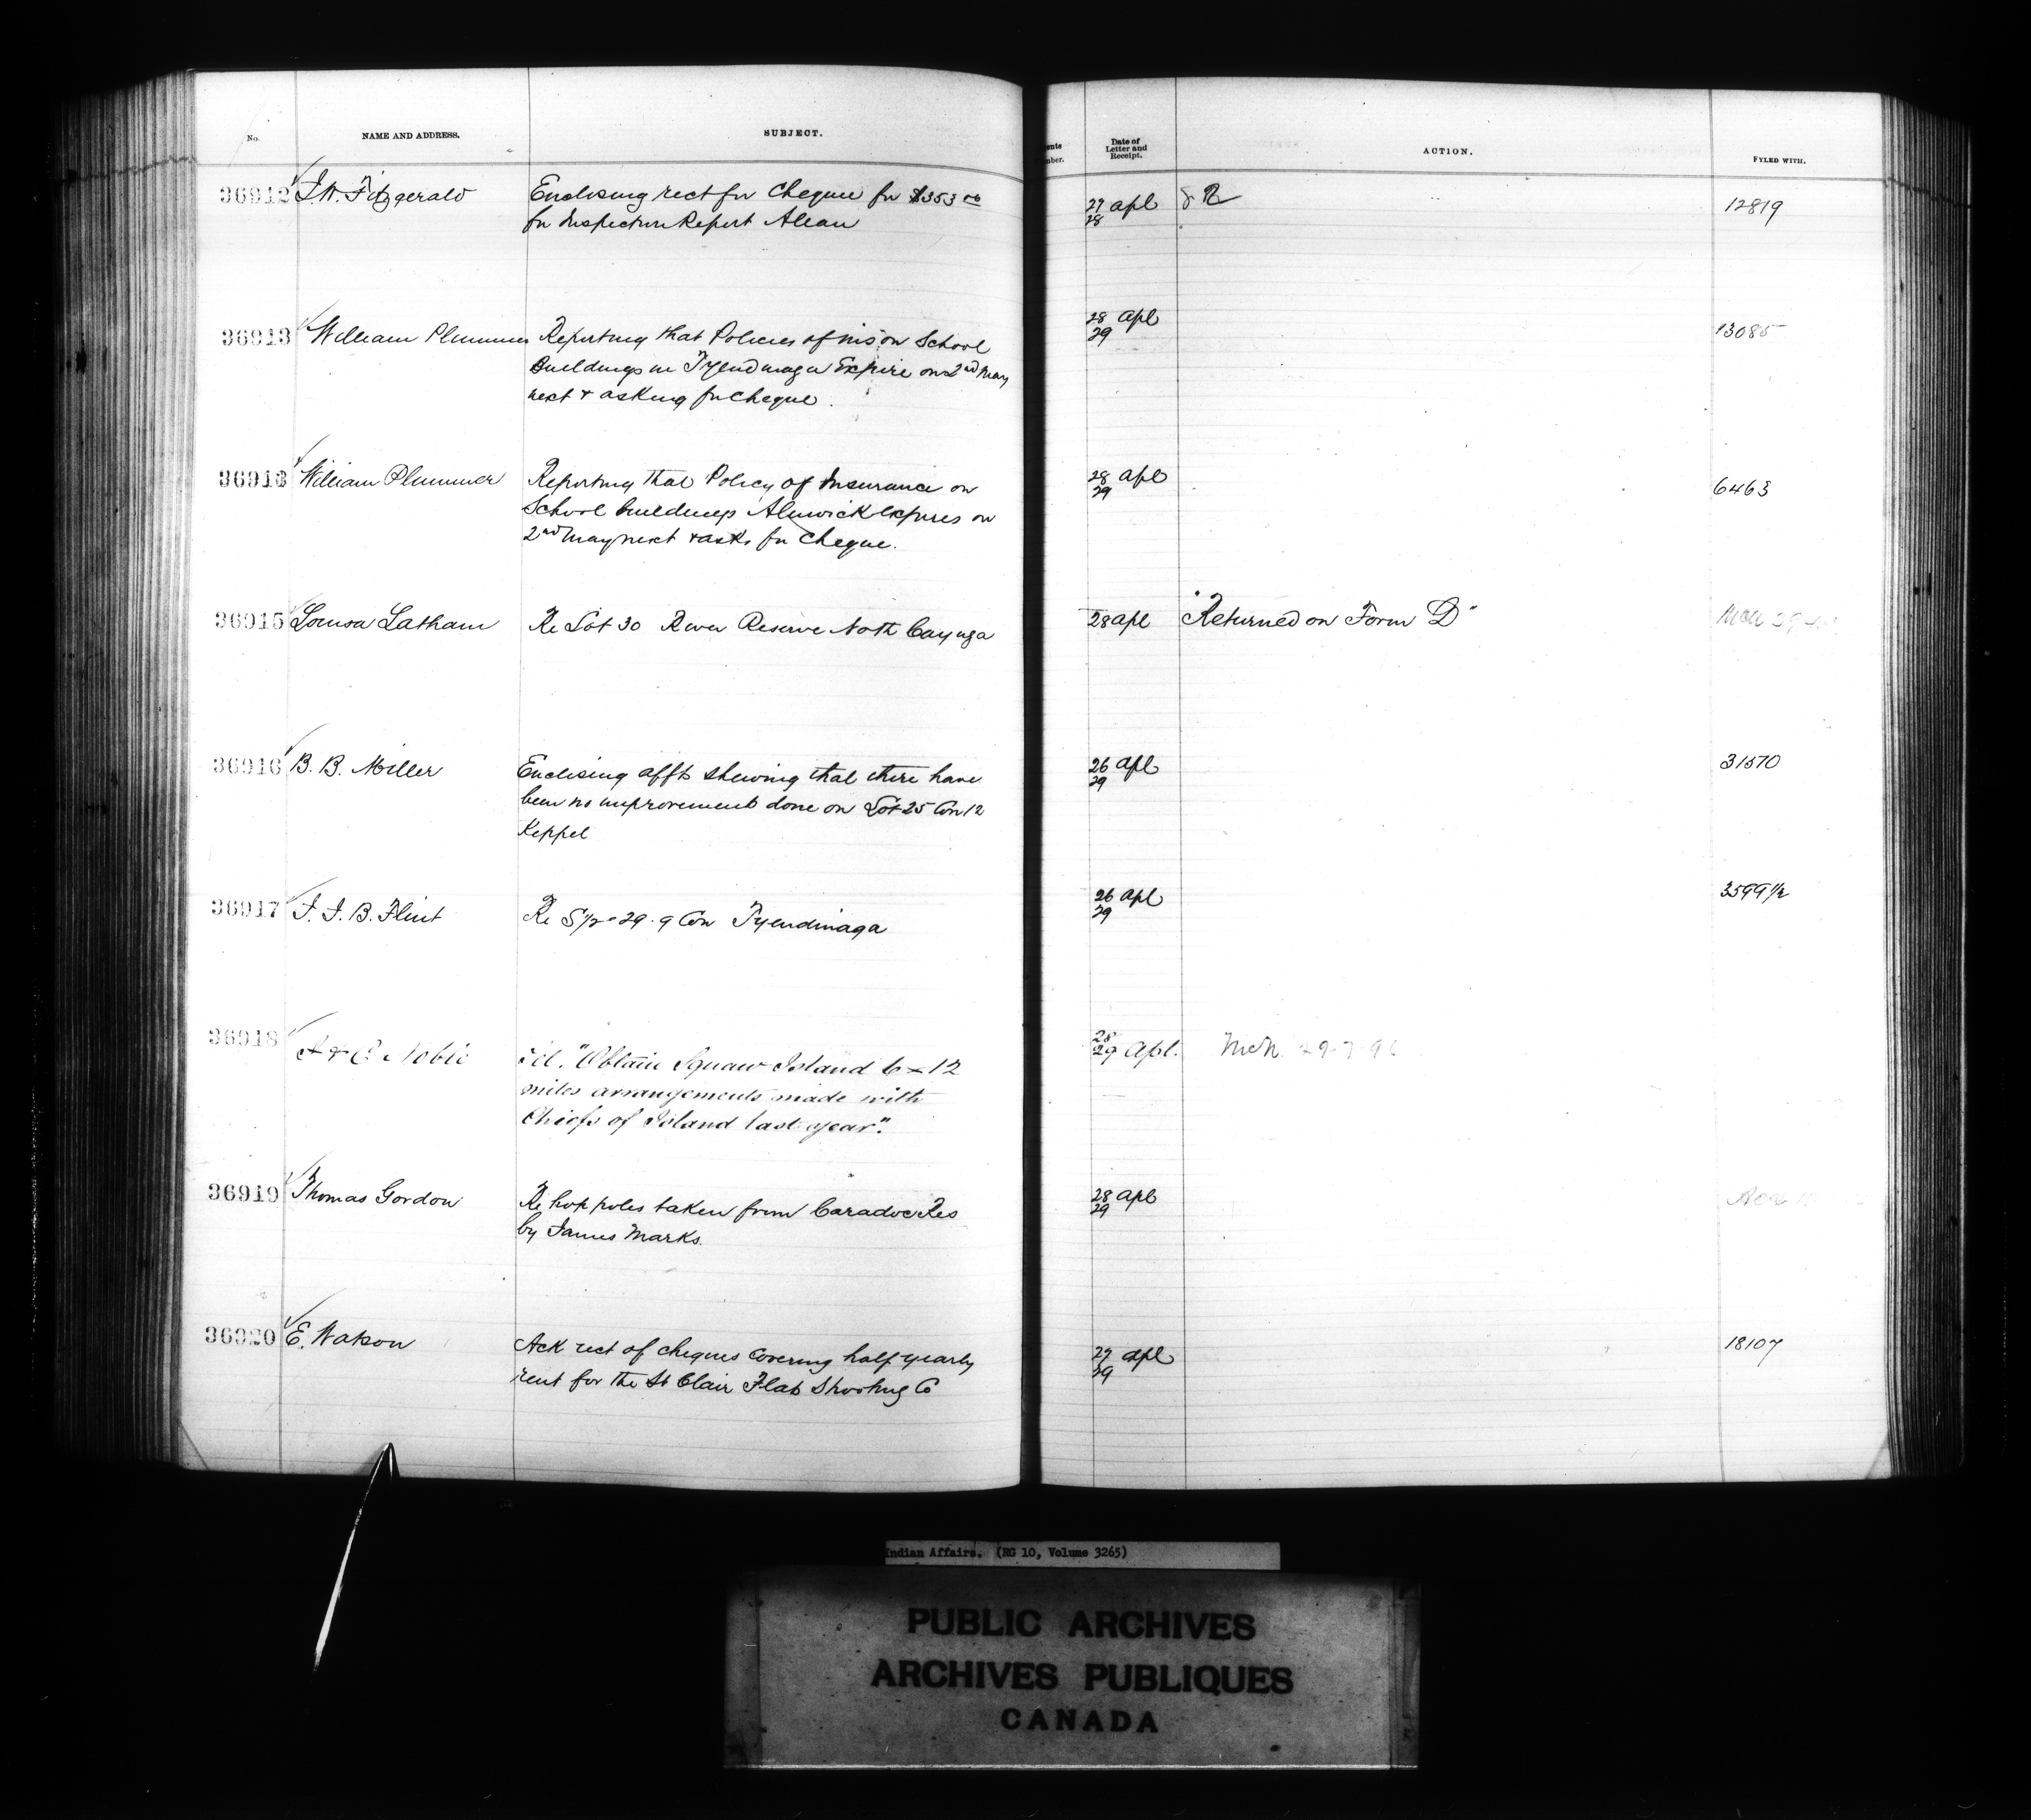 No. NAME AND ADDRESS. SUBJECT. Date of Letter and Receipt. ACTION. FYLED WITH.
36912 J.W. Fitzgerald Enclosing rect for cheque for $353 00 27 apl 12819
for Inspection Report Allan 28
36913 William Plummer Reporting that Policies of ins on School 28 apl 13085
Buildings in Tyendinaga Expire on 2nd May 29
next & asking for cheque.
36913 William Plummer Reporting that Policy of Insurance on 28 apl 6463
School buildings Alnwick expires on 29
2nd May next & asks for cheque.
36915 Louisa Latham Re Lot 30 River Reserve North Cayuga 28 apl "Returned on Form D"
36916 B. B. Miller Enclosing affts shewing that there have 26 apl 31570
been no improvements done on Lot 25 Con 12 29
Keppel
36917 F. F. B. Flint Re S 1/2 29. 9 Con Tyendinaga 26 apl 3599 1/2
29
36918 Noble "Obtain Squaw Island 6 x 12 28
miles arrangements made with 29 Apl.
Chiefs of Island last year".
36919 Thomas Gordon Re hop poles taken from Caradoc Res 28 apl
by James Marks. 29
36920 E. Watson Ack rect of cheques covering half yearly 27 apl 18107
rent for the St Clair Flats Shooting Co 29
Indian Affairs. (RG 10, Volume 3265)
PUBLIC ARCHIVES
ARCHIVES PUBLIQUES
CANADA